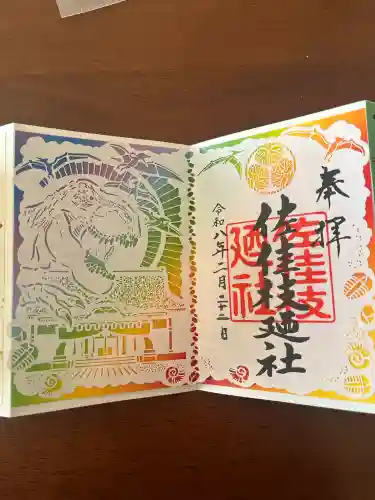 奉拝
佐佳枝廼社
佐佳枝
廼社
令和八年二月二十二日